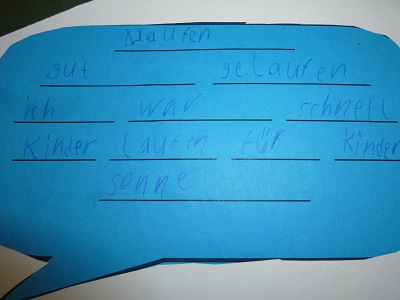 Laufen
gut gelaufen
ich war schnell
Kinder laufen für Kinder
sonne